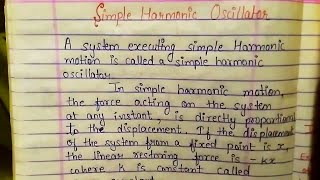 Simple Harmonic Oscillator
A system executing simple Harmonic
motion is called a simple harmonic
oscillator
In simple harmonic motion,
the force acting on the system
at any instant, is directly proportional
to the displacement. If the displacement
of the system from a fixed point is x,
the linear restoring force is -kx
where k is constant called